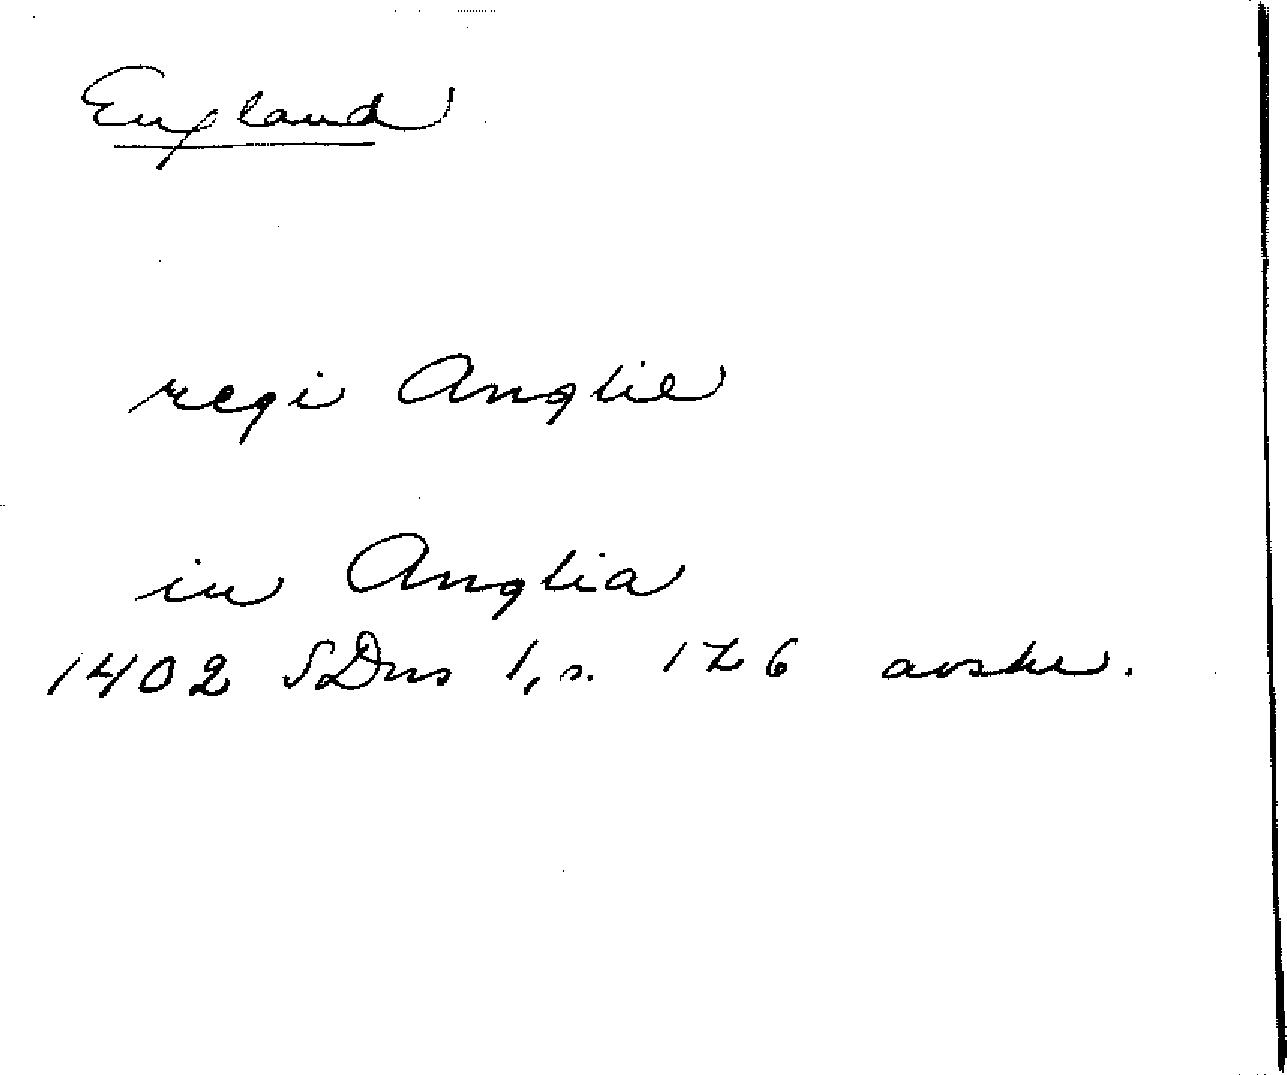 England
regi Anglie
in Anglia
1402 SDns 1, s. 126 avskr.